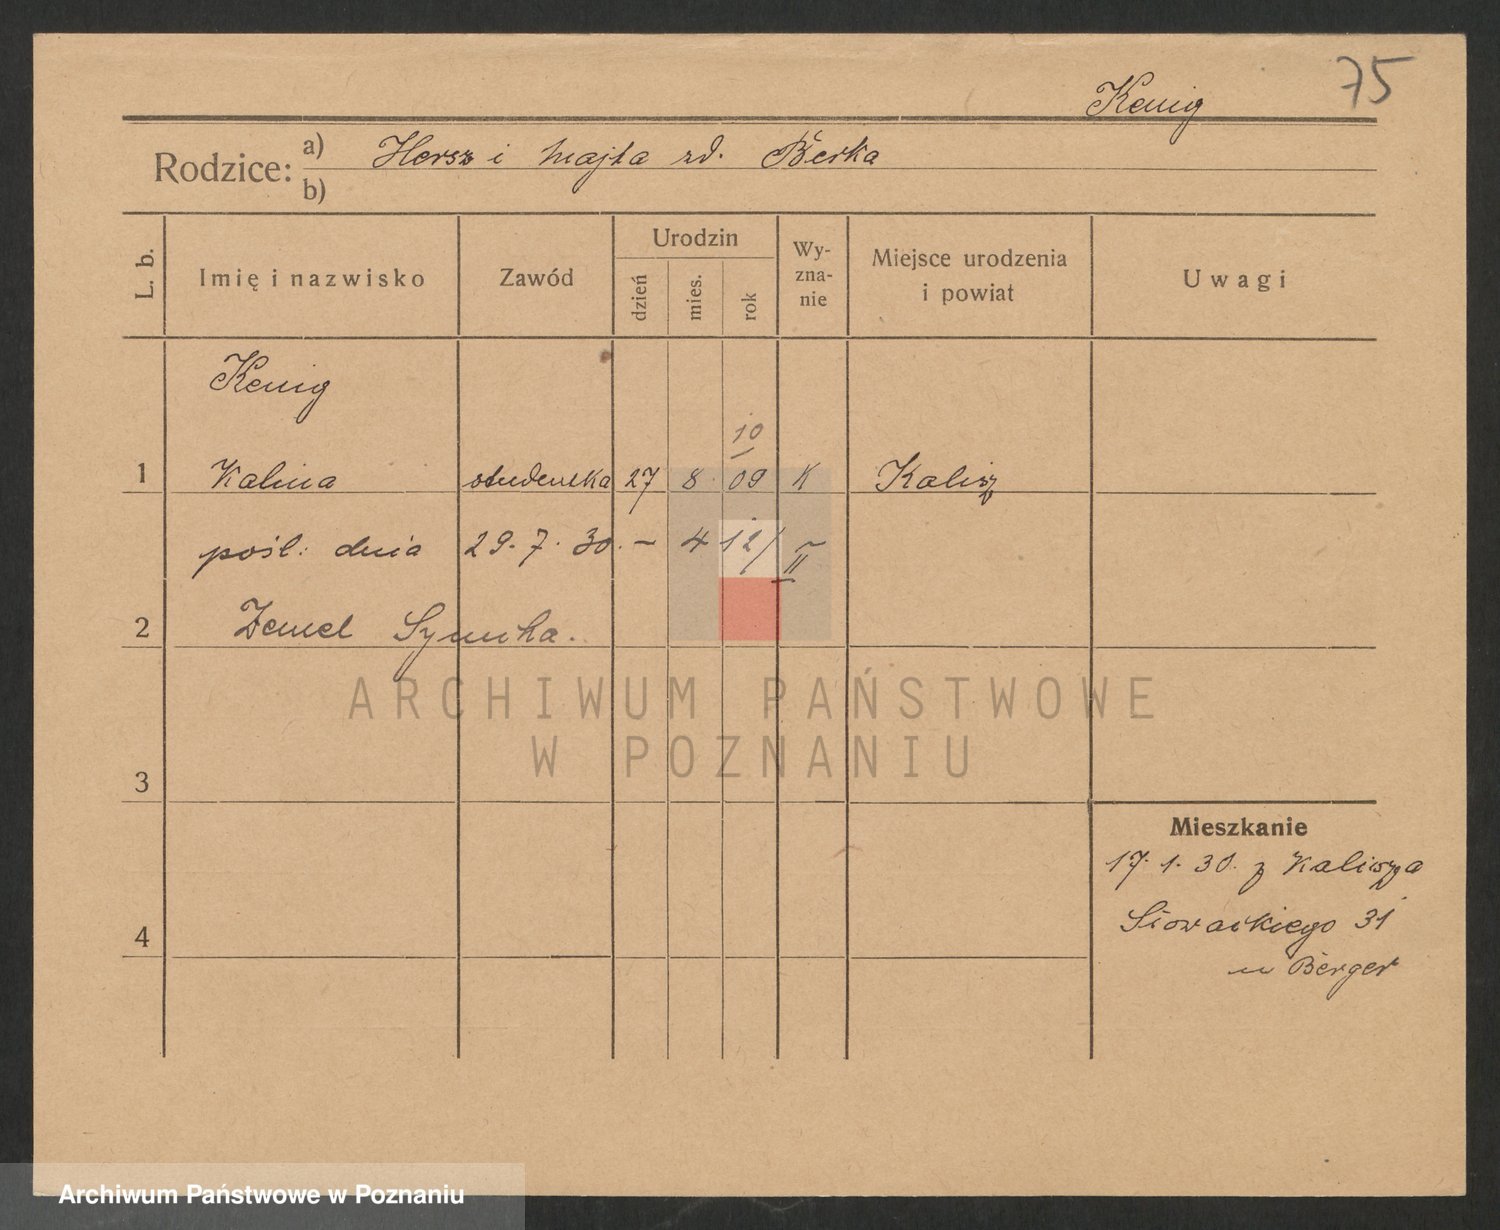 75
Kenig
Rodzice: a) Hersz i Majta zd. Berka
b)
L. b. Imię i nazwisko Zawód Urodzin dzień mies. rok Wy-zna-nie Miejsce urodzenia i powiat Uwagi
Kenig
10
1 Kalina studentka 27 8. 09 K Kalisz
pośl: dnia 29. 7. 30. – 412/II
2 Zemel Symcha.
3
4
Mieszkanie
17. 1. 30. z Kalisza
Słowackiego 31
u Berger
ARCHIWUM PAŃSTWOWE
W POZNANIU
Archiwum Państwowe w Poznaniu